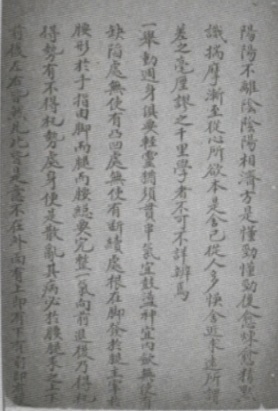 陽陽不離陰陰陽相濟方是懂勁懂勁後愈練愈精默
識揣摩漸至從心所欲本是舍己從人多悞舍近求遠所謂
差之毫厘謬之千里學者不可不詳辨焉
一舉動週身俱要輕靈猶須貫串氣宜鼓盪神宜內斂無使有
缺陷處無使有凸凹處無使有斷續處根在脚發於腿主宰於
腰形於手指由脚而腿而腰總要完整一氣向前進後乃得机
得勢有不得机勢處身便是散亂其病必於腰腿求之上下
前後左右皆然凡此皆是意不在外面有上即有下有前即